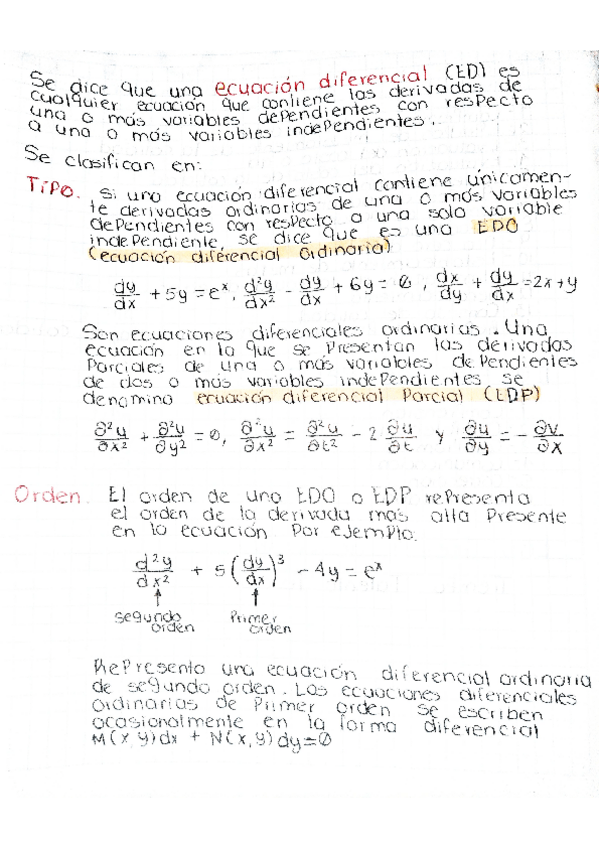 Se dice que una ecuación diferencial (ED) es
cualquier ecuación que contiene las derivadas de
una o más variables dependientes con respecto
a una o más variables independientes.
Se clasifican en:
Tipo. Si una ecuación diferencial contiene únicamen-
te derivadas ordinarias de una o más variables
dependientes con respecto a una sola variable
independiente, se dice que es una EDO
(ecuación diferencial Ordinaria)
dy/dx + 5y = eˣ, d²y/dx² - dy/dx + 6y = 0, dx/dy + dy/dx = 2x + y
Son ecuaciones diferenciales ordinarias. Una
ecuación en la que se presentan las derivadas
Parciales de una o más variables dependientes
de dos o más variables independientes, se
denomina ecuación diferencial Parcial (EDP)
∂²u/∂x² + ∂²u/∂y² = 0, ∂²u/∂x² = ∂²u/∂t² - 2 ∂u/∂t y ∂u/∂y = - ∂v/∂x
Orden. El orden de una EDO o EDP representa
el orden de la derivada más alta presente
en la ecuación. Por ejemplo.
d²y/dx² + 5(dy/dx)³ - 4y = eˣ
↑ ↑
segundo orden Primer orden
Representa una ecuación diferencial ordinaria
de segundo orden. Las ecuaciones diferenciales
ordinarias de Primer orden se escriben
ocasionalmente en la forma diferencial
M(x,y)dx + N(x,y)dy=0